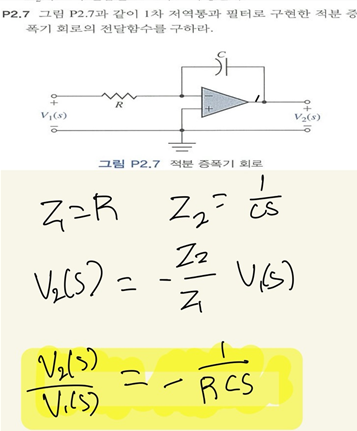 P2.7 그림 P2.7과 같이 1차 저역통과 필터로 구현한 적분 증
폭기 회로의 전달함수를 구하라.
C
R
+
V₁(s)
−
−
+
+
V₂(s)
−
그림 P2.7 적분 증폭기 회로
Z₁=R Z₂= 1/CS
V₂(S) = - Z₂/Z₁ V₁(S)
V₂(S)/V₁(S) = - 1/RCS